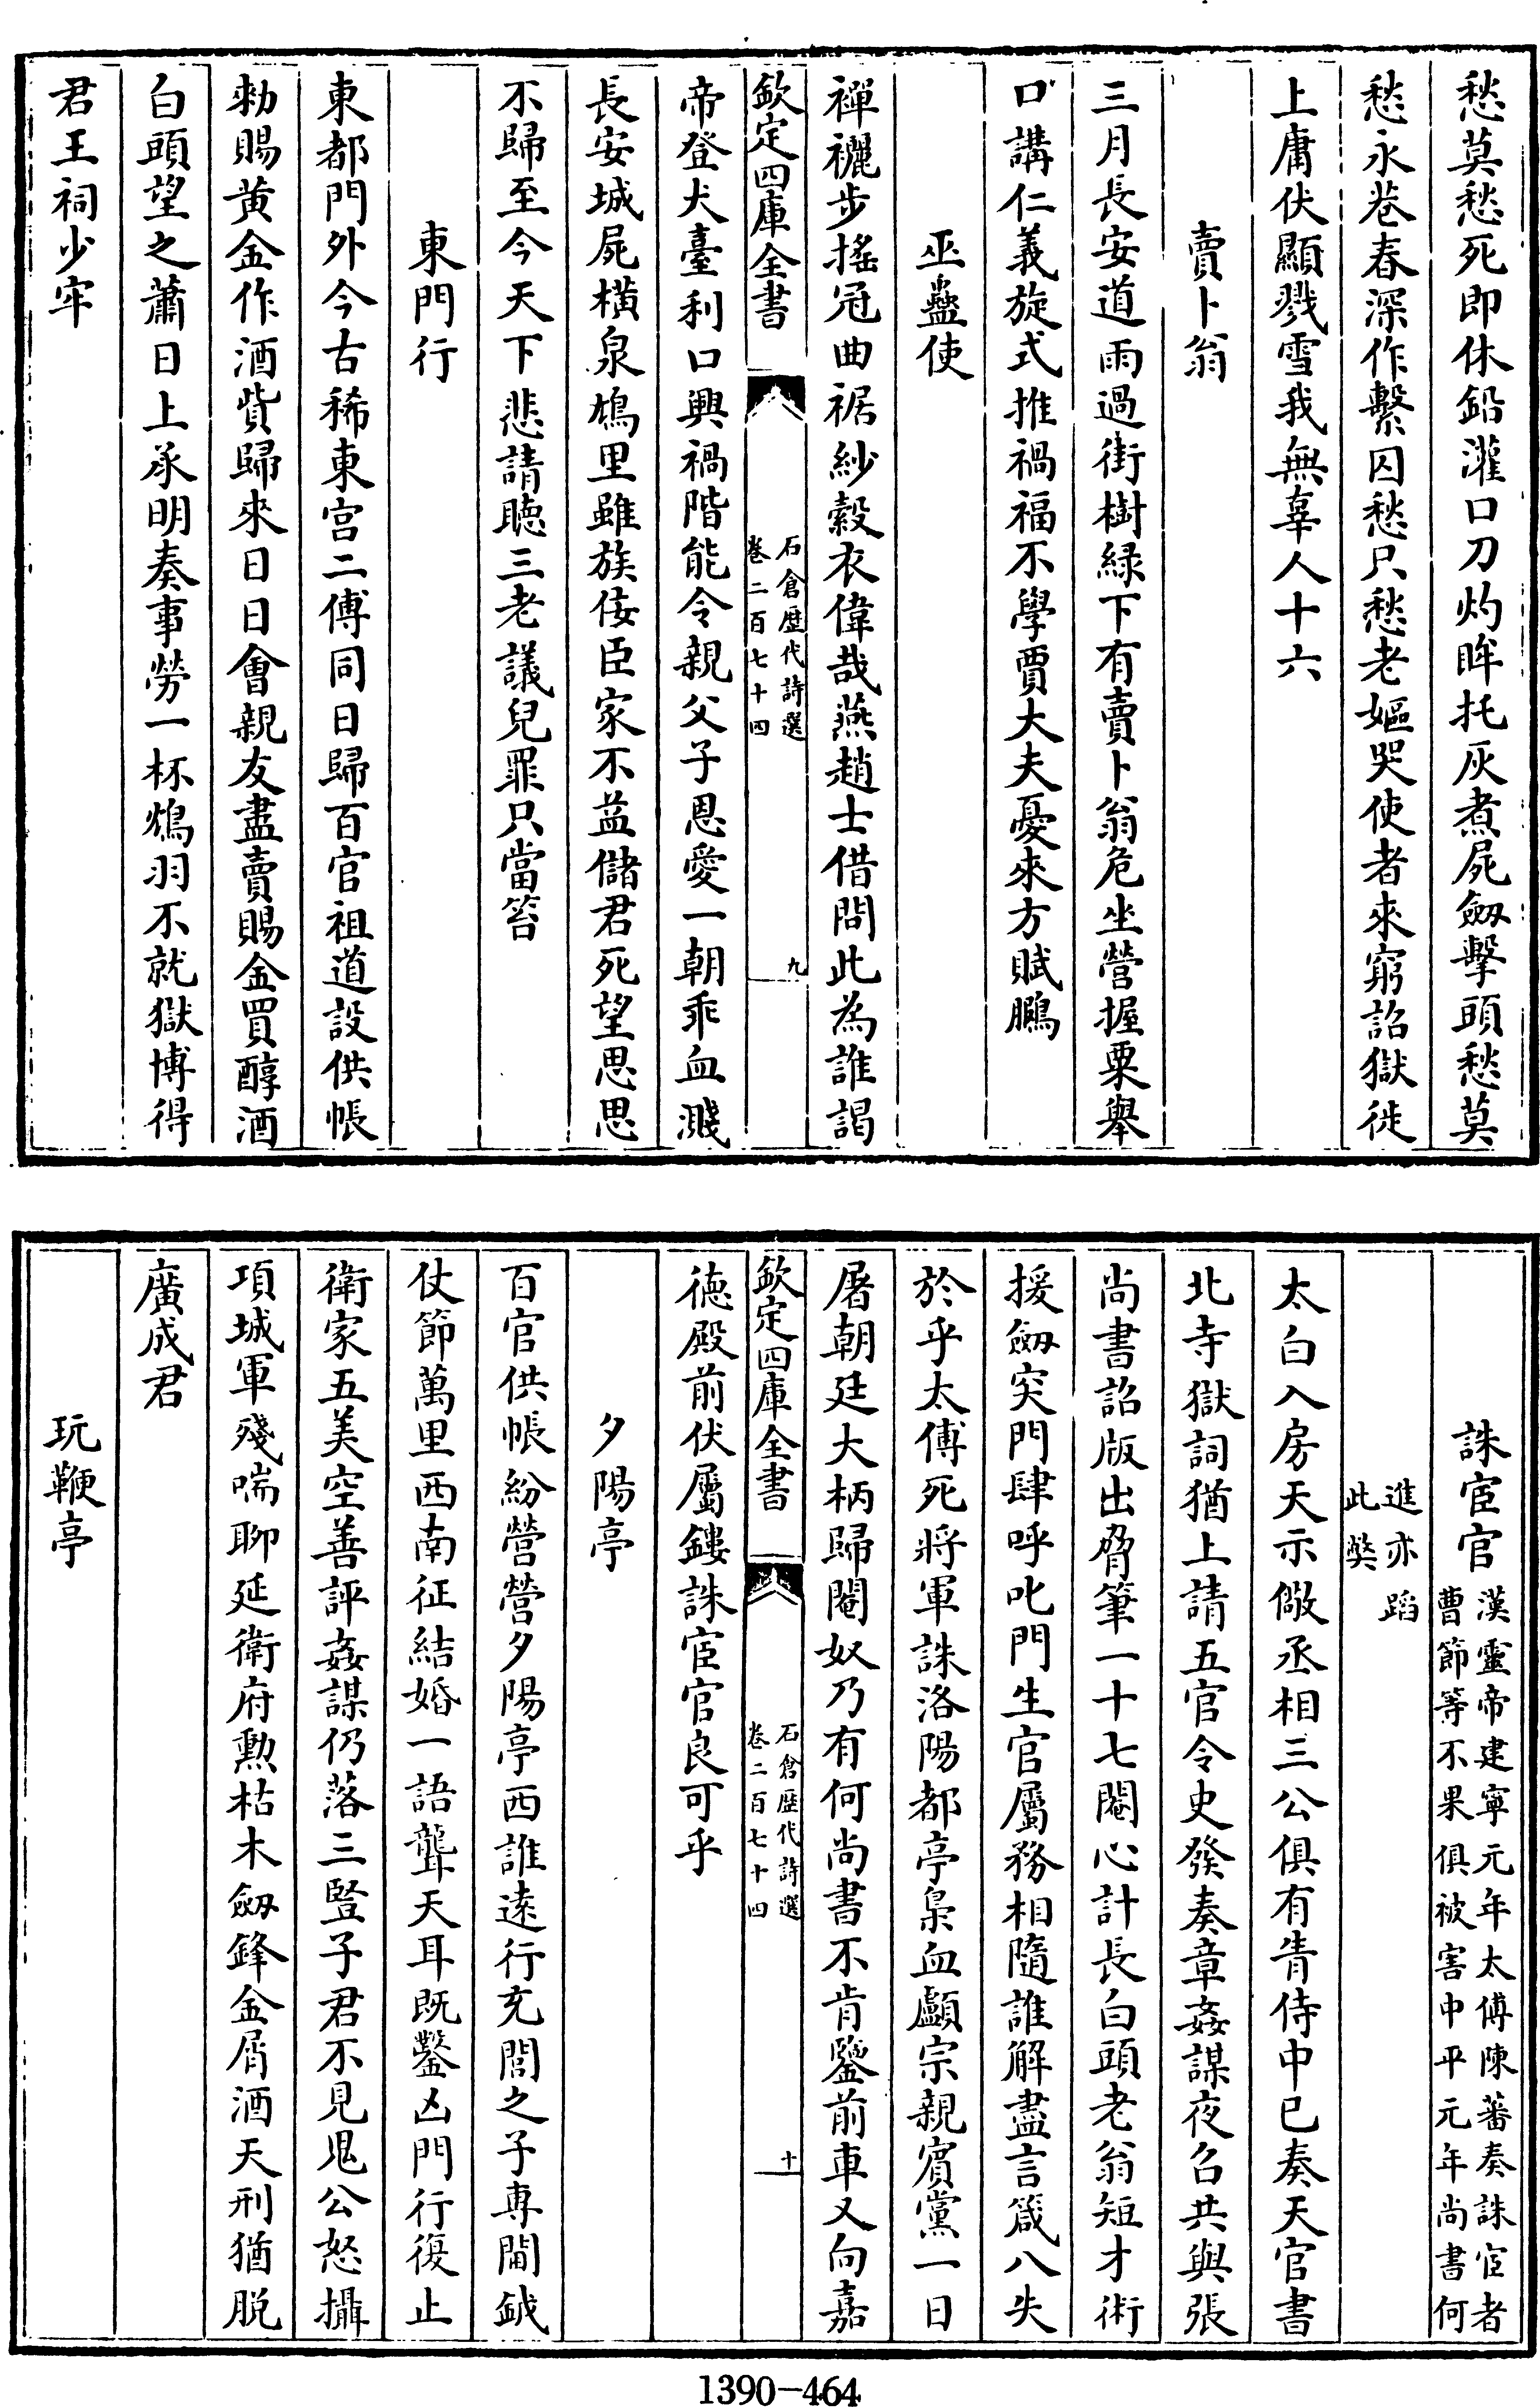 愁莫愁死即休鉛灌口刀灼眸托灰煮屍劔擊頭愁莫
愁永巷春深作繫囚愁只愁老嫗哭使者來窮詔獄徙
上庸伏顯戮雪我無辜人十六
賣卜翁
三月長安道雨過街樹緑下有賣卜翁危坐營握粟舉
口講仁義旋式推禍福不學賈大夫憂來方賦鵩
巫蠱使
襌襹步摇冠曲裾紗縠衣偉哉燕趙士借問此為誰謁
欽定四庫全書
石倉歴代詩選
卷二百七十四
九
帝登犬臺利口興禍階能令親父子恩愛一朝乖血濺
長安城屍橫泉鳩里雖族佞臣家不益儲君死望思思
不歸至今天下悲請聽三老議兒罪只當笞
東門行
東都門外今古稀東宫二傅同日歸百官祖道設供帳
勑賜黄金作酒貲歸來日日會親友盡賣賜金買醇酒
白頭望之蕭日上承明奏事勞一杯鴆羽不就獄博得
君王祠少牢
誅宦官
漢靈帝建寧元年太傅陳蕃奏誅宦者
曹節等不果俱被害中平元年尚書何
進亦蹈
此奬
太白入房天示儆丞相三公俱有眚侍中已奏天官書
北寺獄詞猶上請五官令史發奏章姦謀夜召共與張
尚書詔版出脅筆一十七閹心計長白頭老翁短才術
援劔突門肆呼叱門生官屬務相隨誰解盡言箴八失
於乎太傅死將軍誅洛陽都亭梟血顱宗親賓黨一日
屠朝廷大柄歸閹奴乃有何尚書不肯鑒前車又向嘉
欽定四庫全書
石倉歴代詩選
卷二百七十四
十
徳殿前伏屬鏤誅宦官良可乎
夕陽亭
百官供帳紛營營夕陽亭西誰逺行充閭之子專閫鉞
仗節萬里西南征結婚一語聾天耳既鑿凶門行復止
衛家五美空善評姦謀仍落三豎子君不見鬼公怒攝
項城軍殘喘聊延衛府勲枯木劔鋒金屑酒天刑猶脱
廣成君
玩鞭亭
1390-464